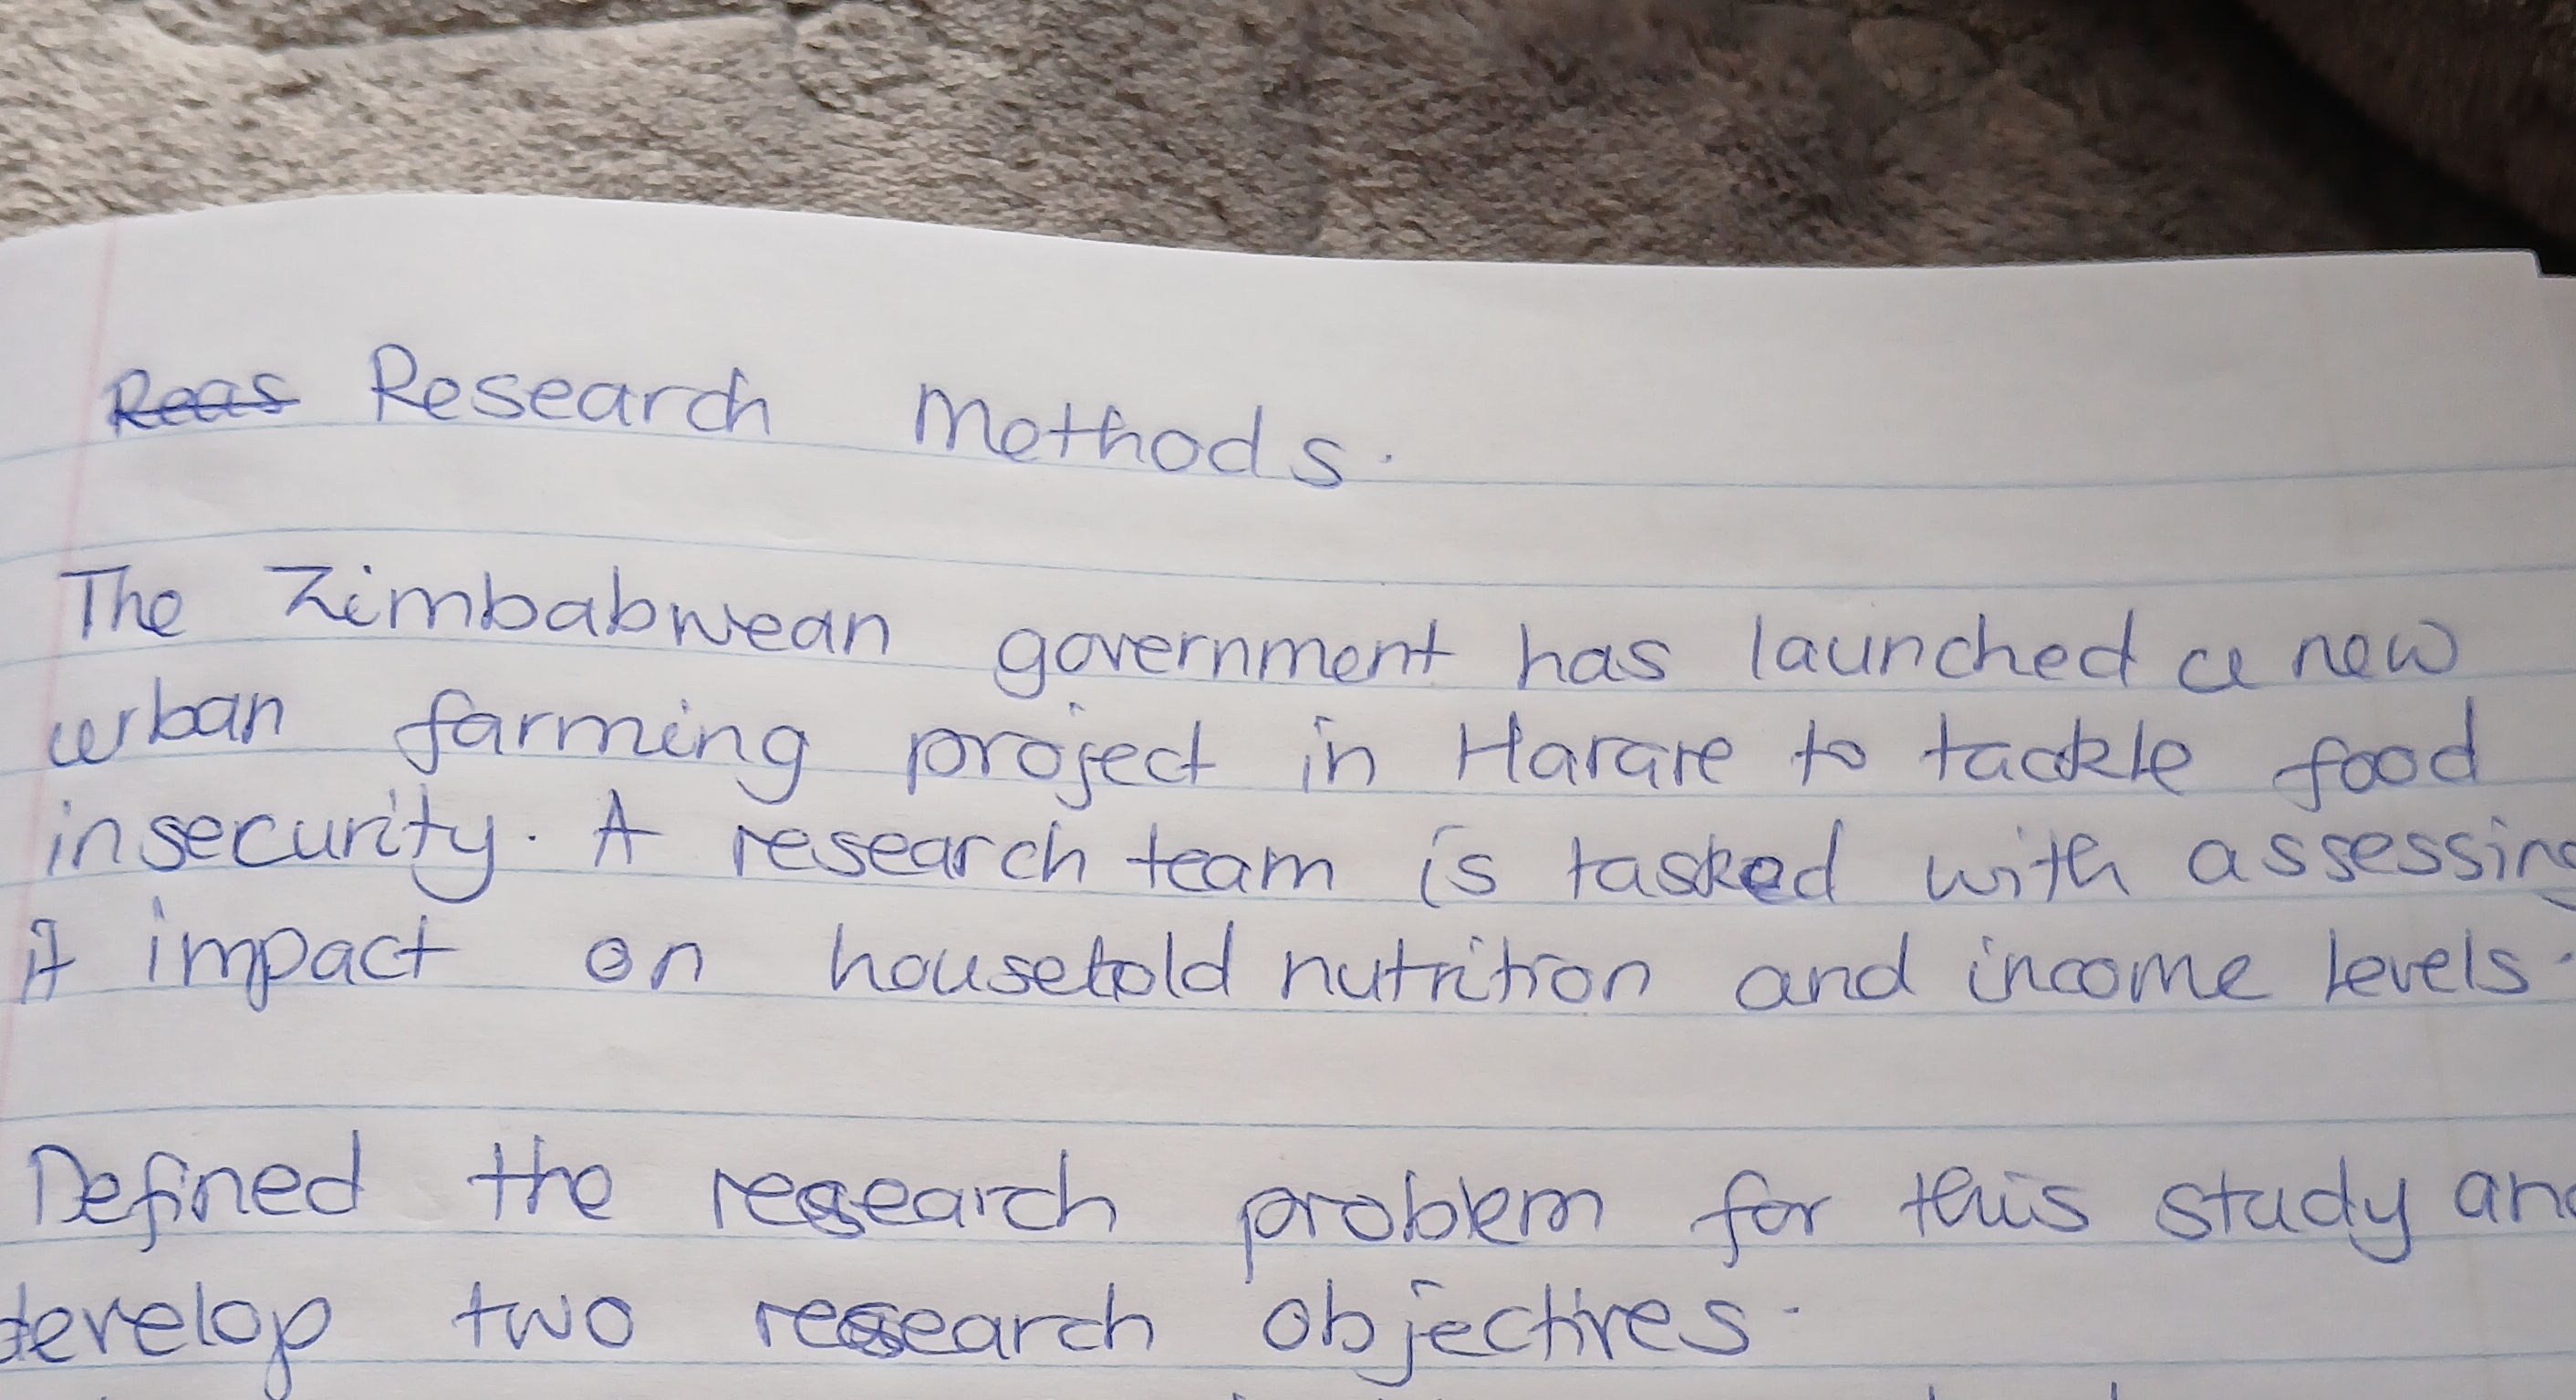 Reas Research Methods.
The Zimbabwean government has launched a new
urban farming project in Harare to tackle food
insecurity. A research team is tasked with assessing
it impact on household nutrition and income levels.
Defined the research problem for this study and
develop two research objectives.